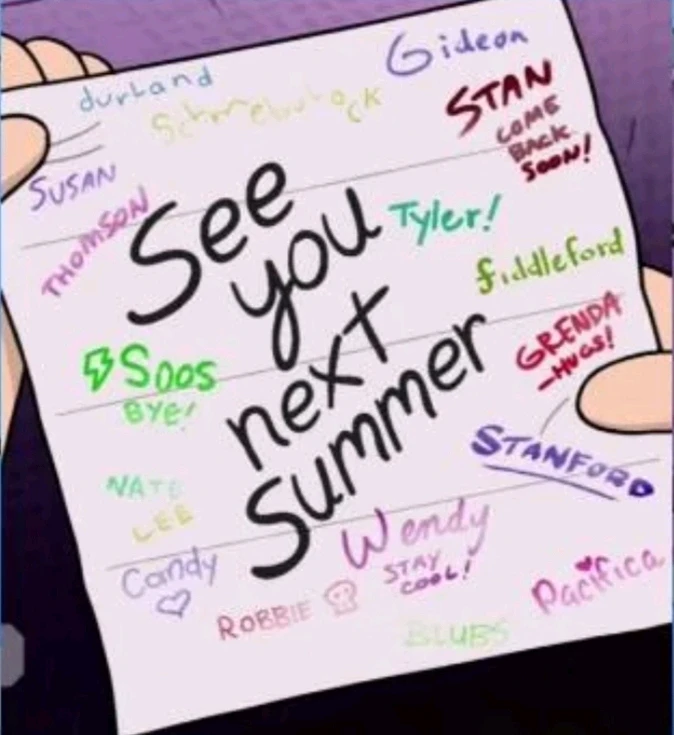 Gideon
durland
Schmebulock
STAN
COME
BACK
SOON!
SUSAN
THOMSON
See
you
next
summer
Tyler!
fiddleford
GRENDA
-HUGS!
Soos
BYE!
STANFORD
NATE
LEE
Candy
Wendy
STAY
COOL!
ROBBIE
Pacifica
BLUBS